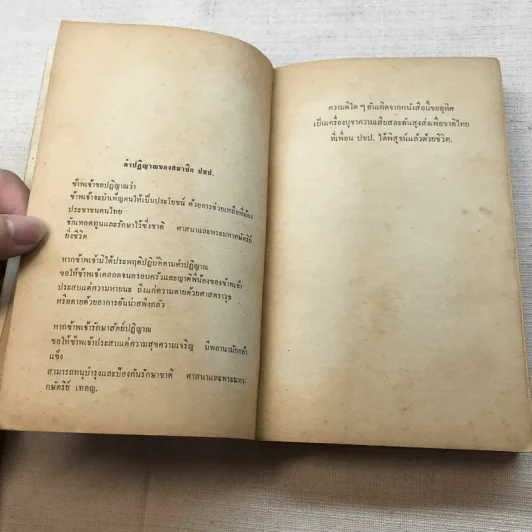 คำปฏิญาณของสมาชิก ปชป.
ข้าพเจ้าขอปฏิญาณว่า
ข้าพเจ้าจะบำเพ็ญตนให้เป็นประโยชน์ ด้วยการช่วยเหลือพี่น้อง
ประชาชนคนไทย
จักเทอดทูนและรักษาไว้ซึ่งชาติ ศาสนาและพระมหากษัตริย์
ยิ่งชีวิต
หากข้าพเจ้ามิได้ประพฤติปฏิบัติตามคำปฏิญาณ
ขอให้ข้าพเจ้าตลอดจนครอบครัวและญาติพี่น้องของข้าพเจ้า
ประสบแต่ความหายนะ ถึงแก่ความตายด้วยศาสตราวุธ
หรือตายด้วยอาการอันน่าสพึงกลัว
หากข้าพเจ้ารักษาสัตย์ปฏิญาณ
ขอให้ข้าพเจ้าประสบแต่ความสุขความเจริญ มีพลานามัยกล้า
แข็ง
สามารถทนุบำรุงและป้องกันรักษาชาติ ศาสนาและพระมหา-
กษัตริย์ เทอญ.
ความดีใด ๆ อันเกิดจากหนังสือนี้ขออุทิศ
เป็นเครื่องบูชาความเสียสละอันสูงส่งเพื่อชาติไทย
ที่เพื่อน ปชป. ได้พิสูจน์แล้วด้วยชีวิต.